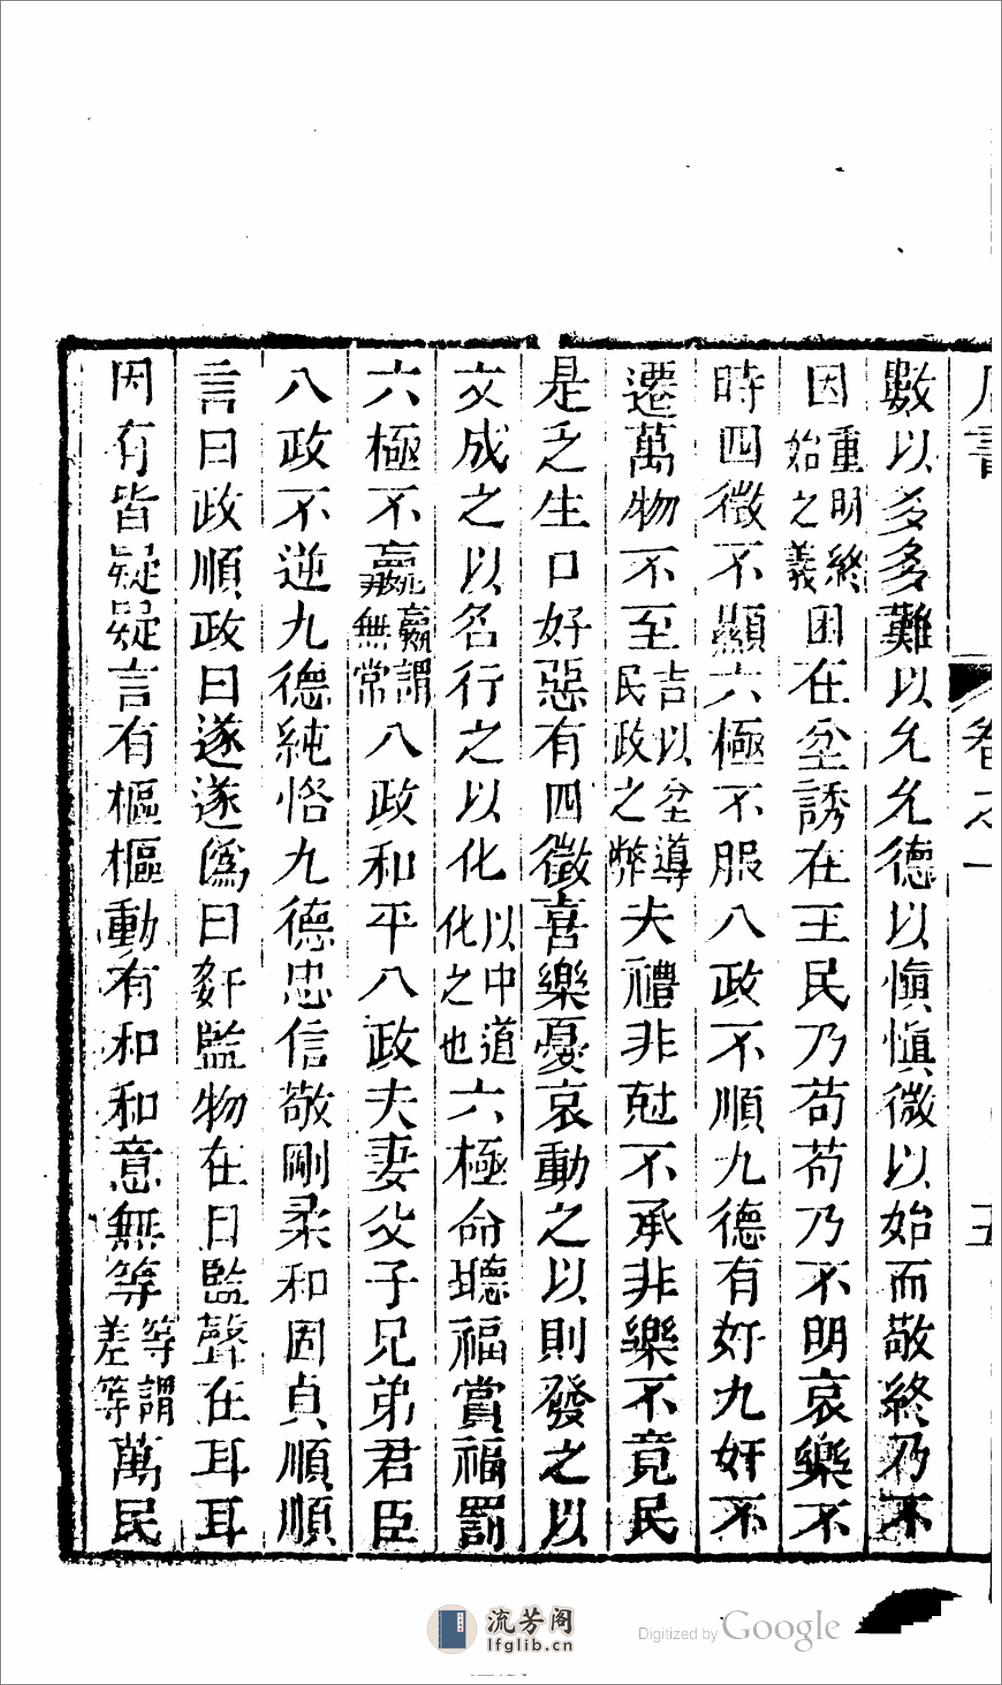 數以多多難以允允德以慎慎微以始而敬終乃不
因重明終始之義困在坌誘在王民乃苟苟乃不明哀樂不
時四徵不顯六極不服八政不順九德有奸九奸不
遷萬物不至吉以坌導民政之弊夫禮非尅不承非樂不竟民
是乏生口好惡有四徵喜樂憂哀動之以則發之以
文成之以名行之以化以中道化之也六極命聽福賞福罰
六極不嬴嬴謂無常八政和平八政夫妻父子兄弟君臣
八政不逆九德純恪九德忠信敬剛柔和固貞順順
言曰政順政曰遂遂僞曰奸監物在目監聲在耳耳
因有皆疑疑言有樞樞動有和和意無等等謂差等萬民
卷之一
五
流芳阁
lfglib.cn
Digitized by Google